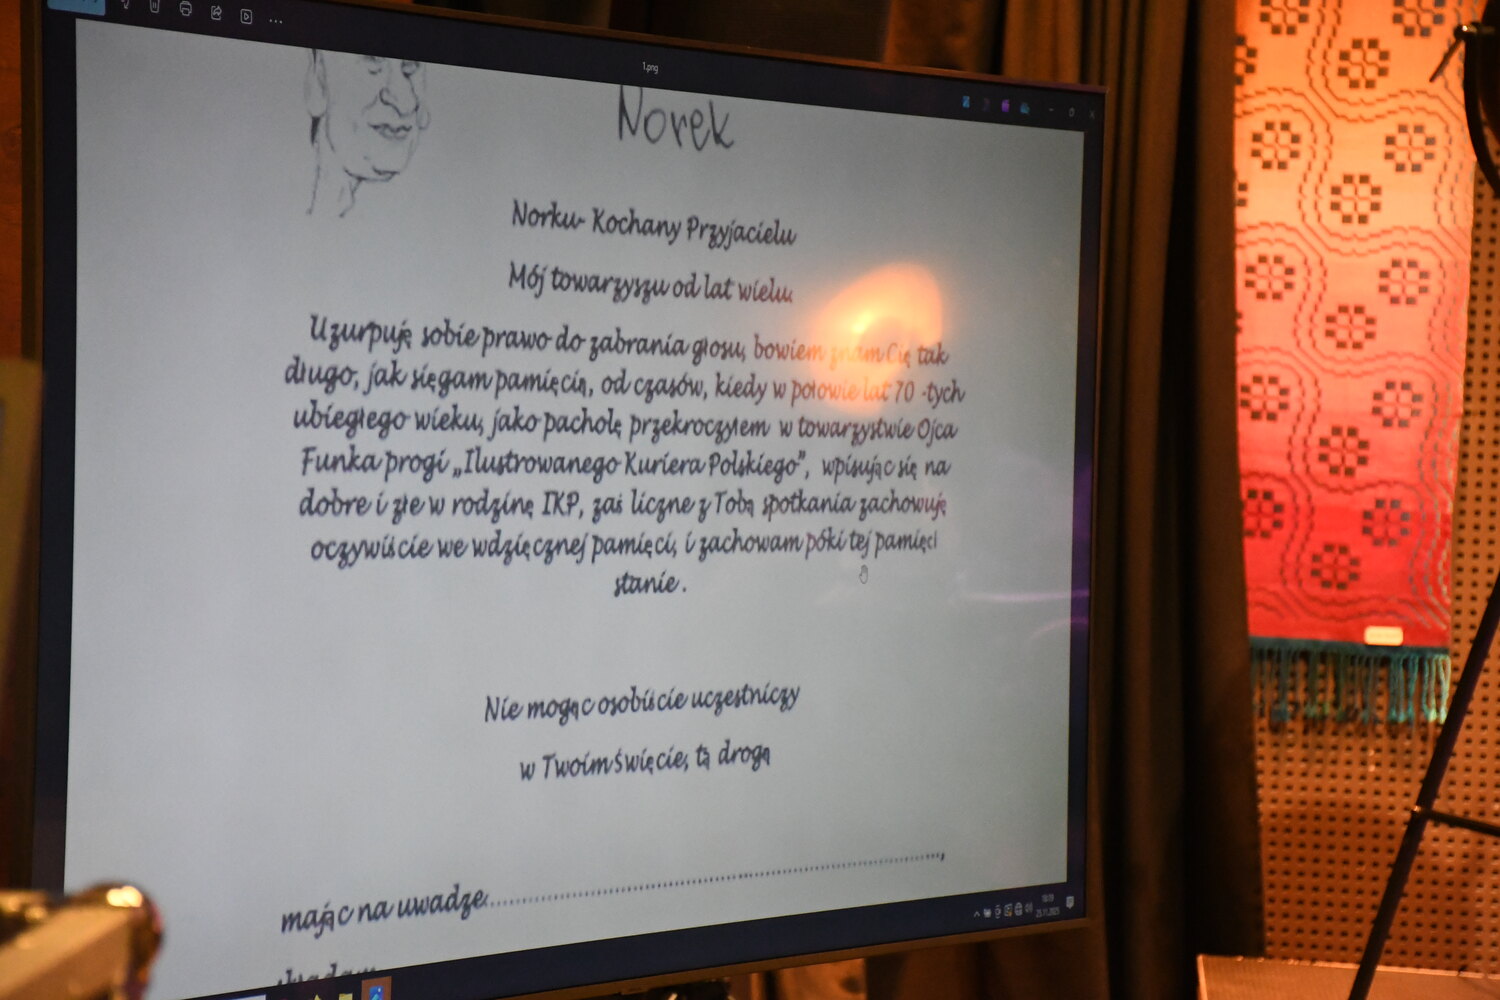 1.png
Norek
Norku- Kochany Przyjacielu
Mój towarzyszu od lat wielu.
Uzurpuję sobie prawo do zabrania głosu, bowiem znam Cię tak
długo, jak sięgam pamięcią, od czasów, kiedy w połowie lat 70 -tych
ubiegłego wieku, jako pacholę przekroczyłem w towarzystwie Ojca
Funka progi „Ilustrowanego Kuriera Polskiego”, wpisując się na
dobre i złe w rodzinę IKP, zaś liczne z Tobą spotkania zachowuję
oczywiście we wdzięcznej pamięci, i zachowam póki tej pamięci
stanie .
Nie mogąc osobiście uczestniczy
w Twoim Święcie, tą drogą
mając na uwadze.......................................................................................,